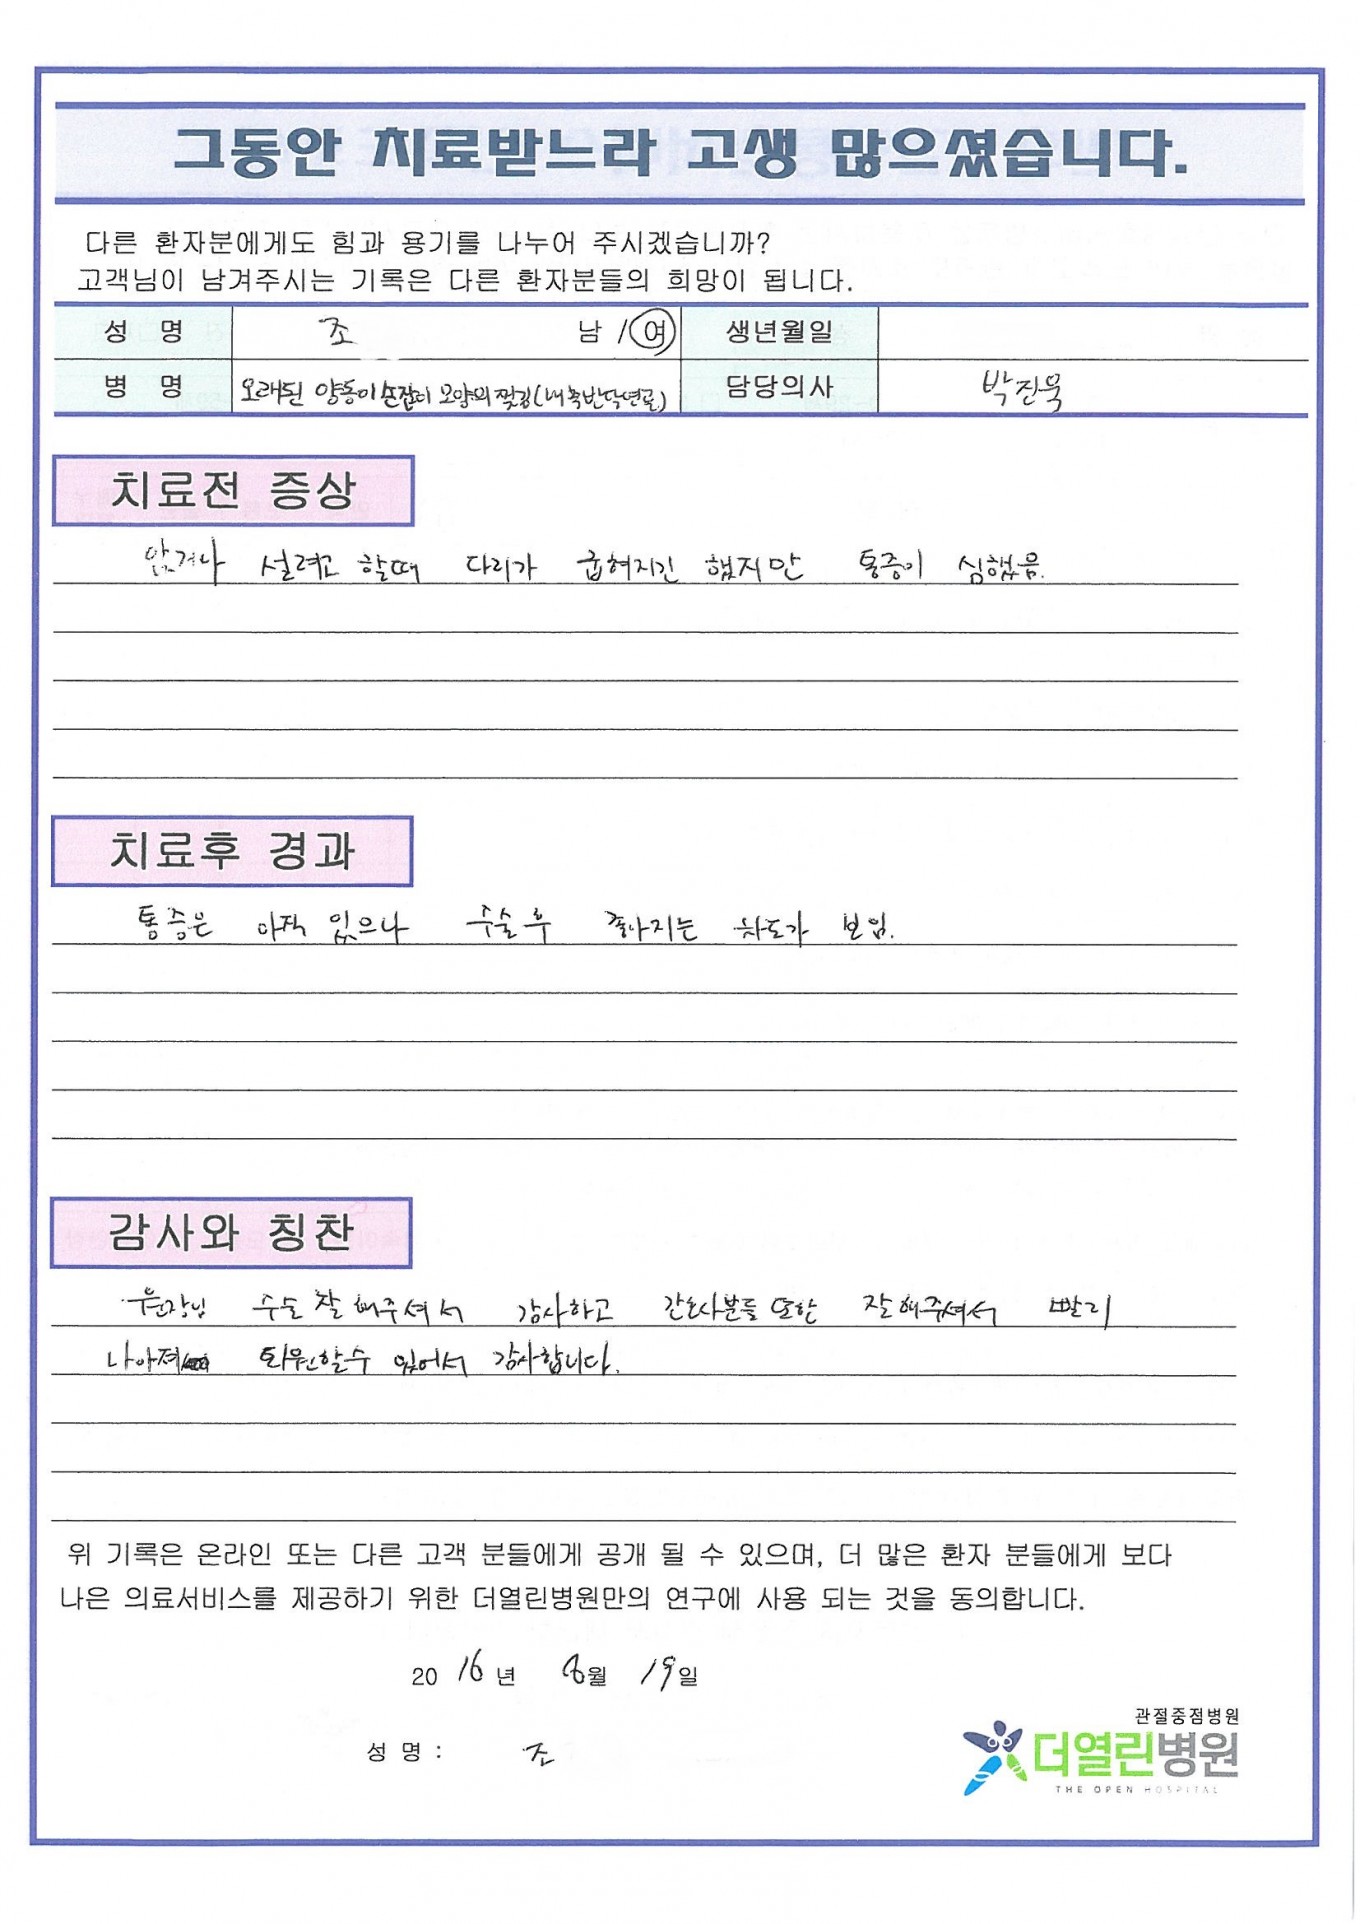 그동안 치료받느라 고생 많으셨습니다.
다른 환자분에게도 힘과 용기를 나누어 주시겠습니까?
고객님이 남겨주시는 기록은 다른 환자분들의 희망이 됩니다.
성 명 조 남 / 여 생년월일
병 명 오래된 양동이 손잡이 모양의 찢김(내측반달연골) 담당의사 박진욱
치료전 증상
앉거나 설려고 할때 다리가 굽혀지긴 했지만 통증이 심했음.
치료후 경과
통증은 아직 있으나 수술후 좋아지는 차도가 보임.
감사와 칭찬
원장님 수술 잘 해주셔서 감사하고 간호사분들 또한 잘해주셔서 빨리
나아져 퇴원할수 있어서 감사합니다.
위 기록은 온라인 또는 다른 고객 분들에게 공개 될 수 있으며, 더 많은 환자 분들에게 보다
나은 의료서비스를 제공하기 위한 더열린병원만의 연구에 사용 되는 것을 동의합니다.
20 16 년 8월 19일
성 명 : 조
관절중점병원
더열린병원
THE OPEN HOSPITAL